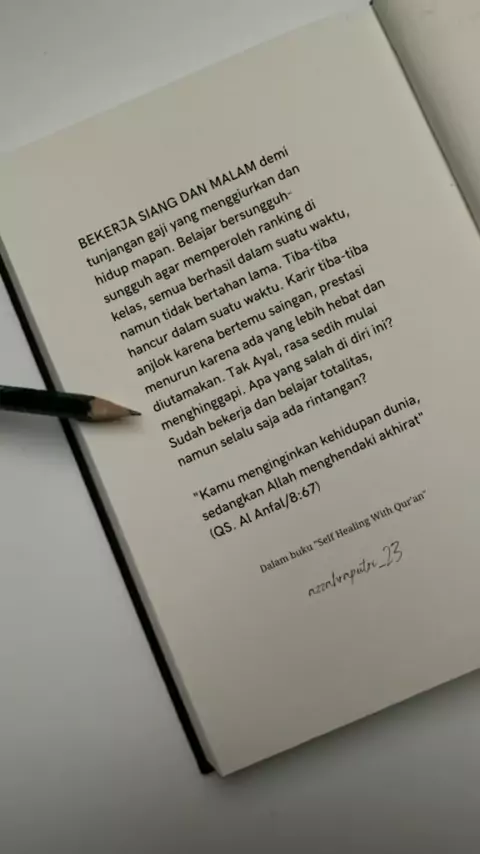 BEKERJA SIANG DAN MALAM demi
tunjangan gaji yang menggiurkan dan
hidup mapan. Belajar bersungguh-
sungguh agar memperoleh ranking di
kelas, semua berhasil dalam suatu waktu,
namun tidak bertahan lama. Tiba-tiba
hancur dalam suatu waktu. Karir tiba-tiba
anjlok karena bertemu saingan, prestasi
menurun karena ada yang lebih hebat dan
diutamakan. Tak Ayal, rasa sedih mulai
menghinggapi. Apa yang salah di diri ini?
Sudah bekerja dan belajar totalitas,
namun selalu saja ada rintangan?
"Kamu menginginkan kehidupan dunia,
sedangkan Allah menghendaki akhirat"
(QS. Al Anfal/8:67)
Dalam buku "Self Healing With Qur'an"